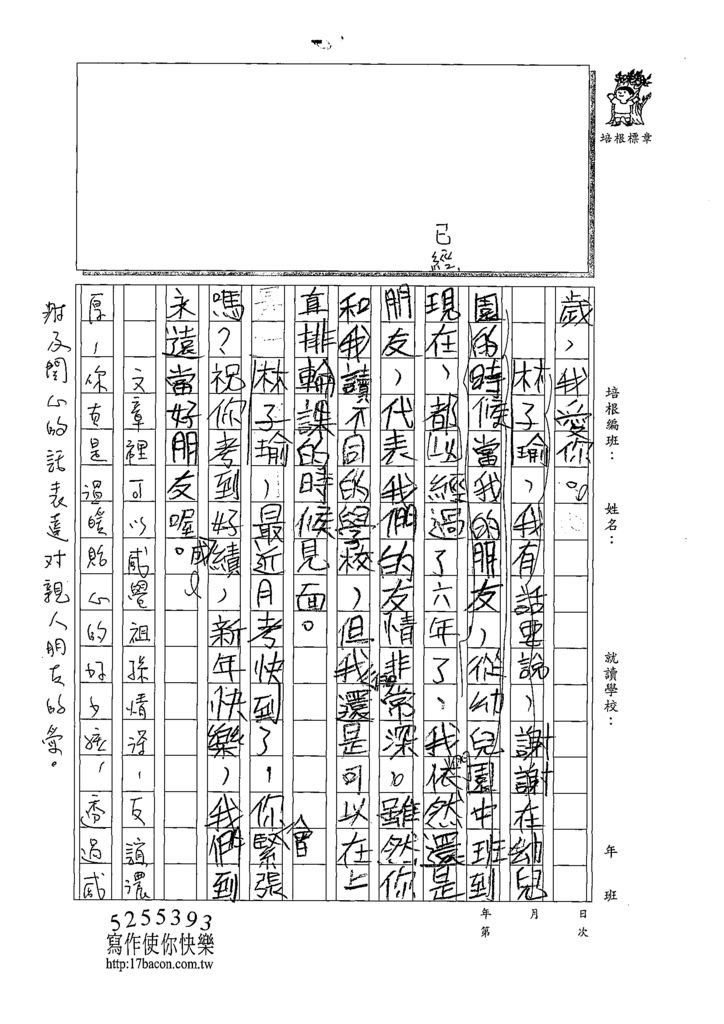 培根標章
已經
培根編班：　姓名：　就讀學校：　年　班
日　月　年
次　第
歲，我愛你。
林子瑜，我有話要說，謝謝在幼兒
園的時候當我的朋友，從幼兒園中班到
現在，都以經過了六年了，我依然還是
朋友，代表我們的友情非常深。雖然你
和我讀不同的學校，但我還是可以在上
直排輪課的時候見面。
林子瑜，最近月考快到了，你會緊張
嗎？祝你考到好成績，新年快樂，我們到
永遠當好朋友喔。
文章裡可以感覺祖孫情深，友誼濃
厚，你真是溫暖貼心的好女孩，透過感
謝及關心的話表達對親人朋友的愛。
5255393
寫作使你快樂
http:17bacon.com.tw